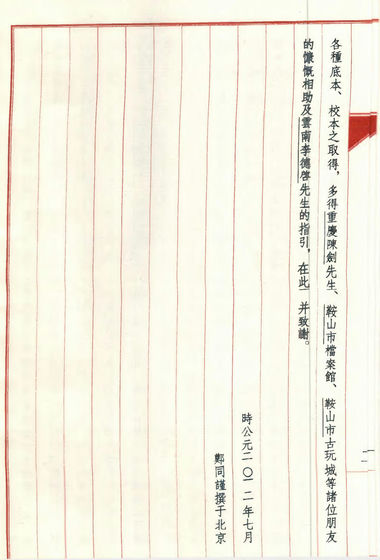 各種底本、校本之取得，多得重慶陳劍先生、鞍山市檔案館、鞍山市古玩城等諸位朋友
的慷慨相助及雲南李德啓先生的指引，在此一并致謝。
時公元二〇一二年七月
鄭同謹撰于北京